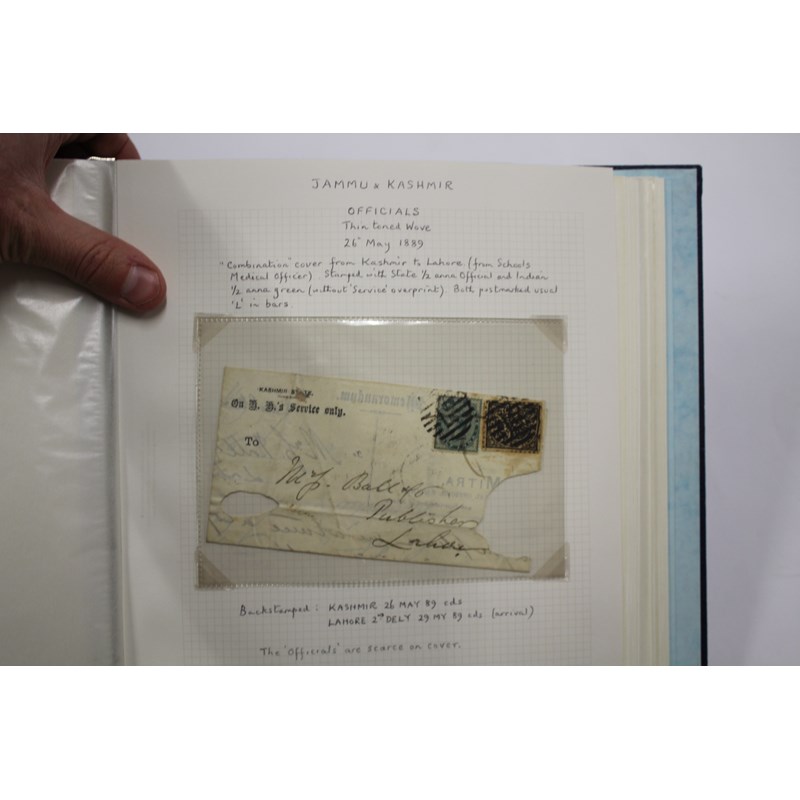 JAMMU & KASHMIR
OFFICIALS
Thin toned Wove
26 May 1889
"Combination" cover from Kashmir to Lahore (from Schools
Medical Officer). Stamped with State ½ anna Official and Indian
½ anna green (without 'Service' overprint). Both postmarked usual
'L' in bars.
KASHMIR STATE.
On H. H.'s Service only.
Memorandum.
To
MITRA
Ball & Co
Publishers
Lahore
Backstamped: KASHMIR 26 MAY 89 cds
LAHORE 2ND DELY 29 MY 89 cds (arrival)
The 'Officials' are scarce on cover.